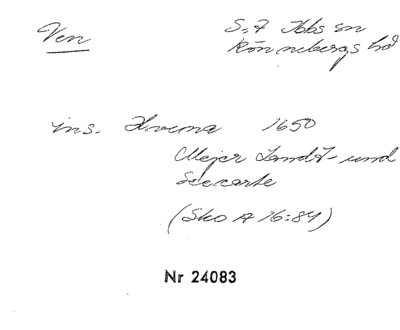 Ven
S:t Ibbs sn
Rönnebergs hd
ins. Hvena 1650
Mejer Landt- und
Seecarte
(Sko A 16:84)
Nr 24083